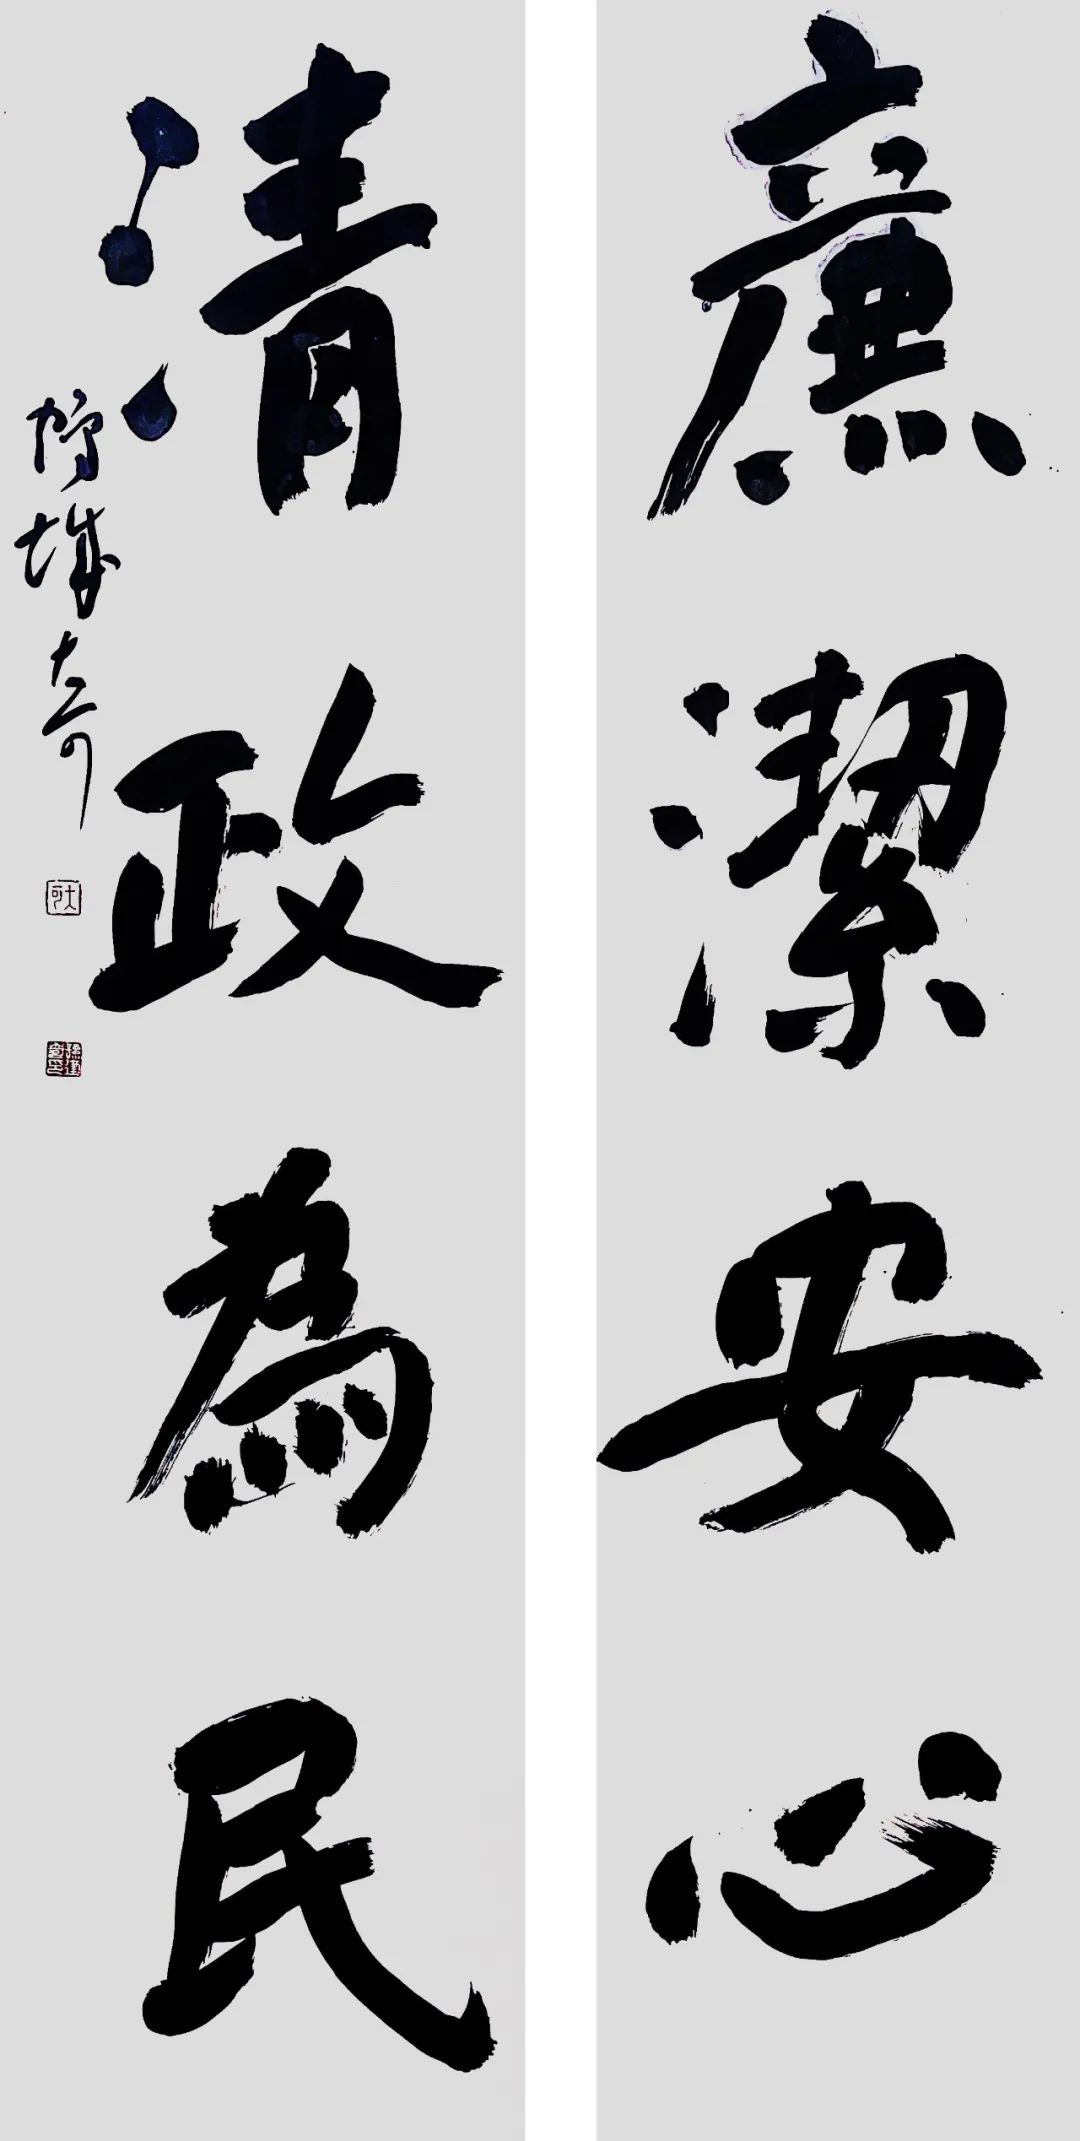 廉潔安心
清政為民